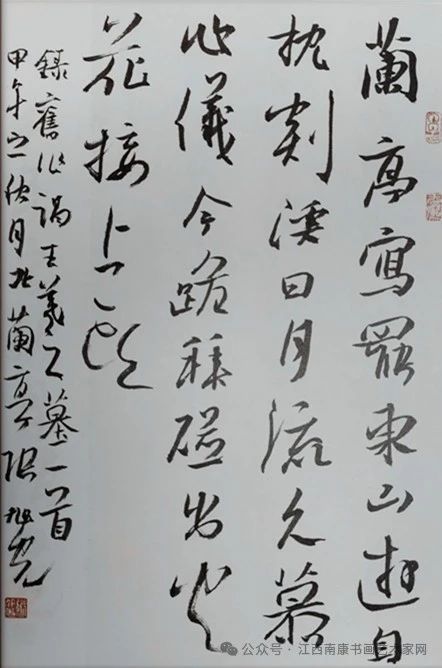 蘭亭寫罷東山遊自
枕剡溪日月流久慕
心儀今跪拜碰出火
花接上頭
錄舊作謁王羲之墓一首
甲午之秋月北蘭亭張旭光
公众号 · 江西南康书画艺术家网